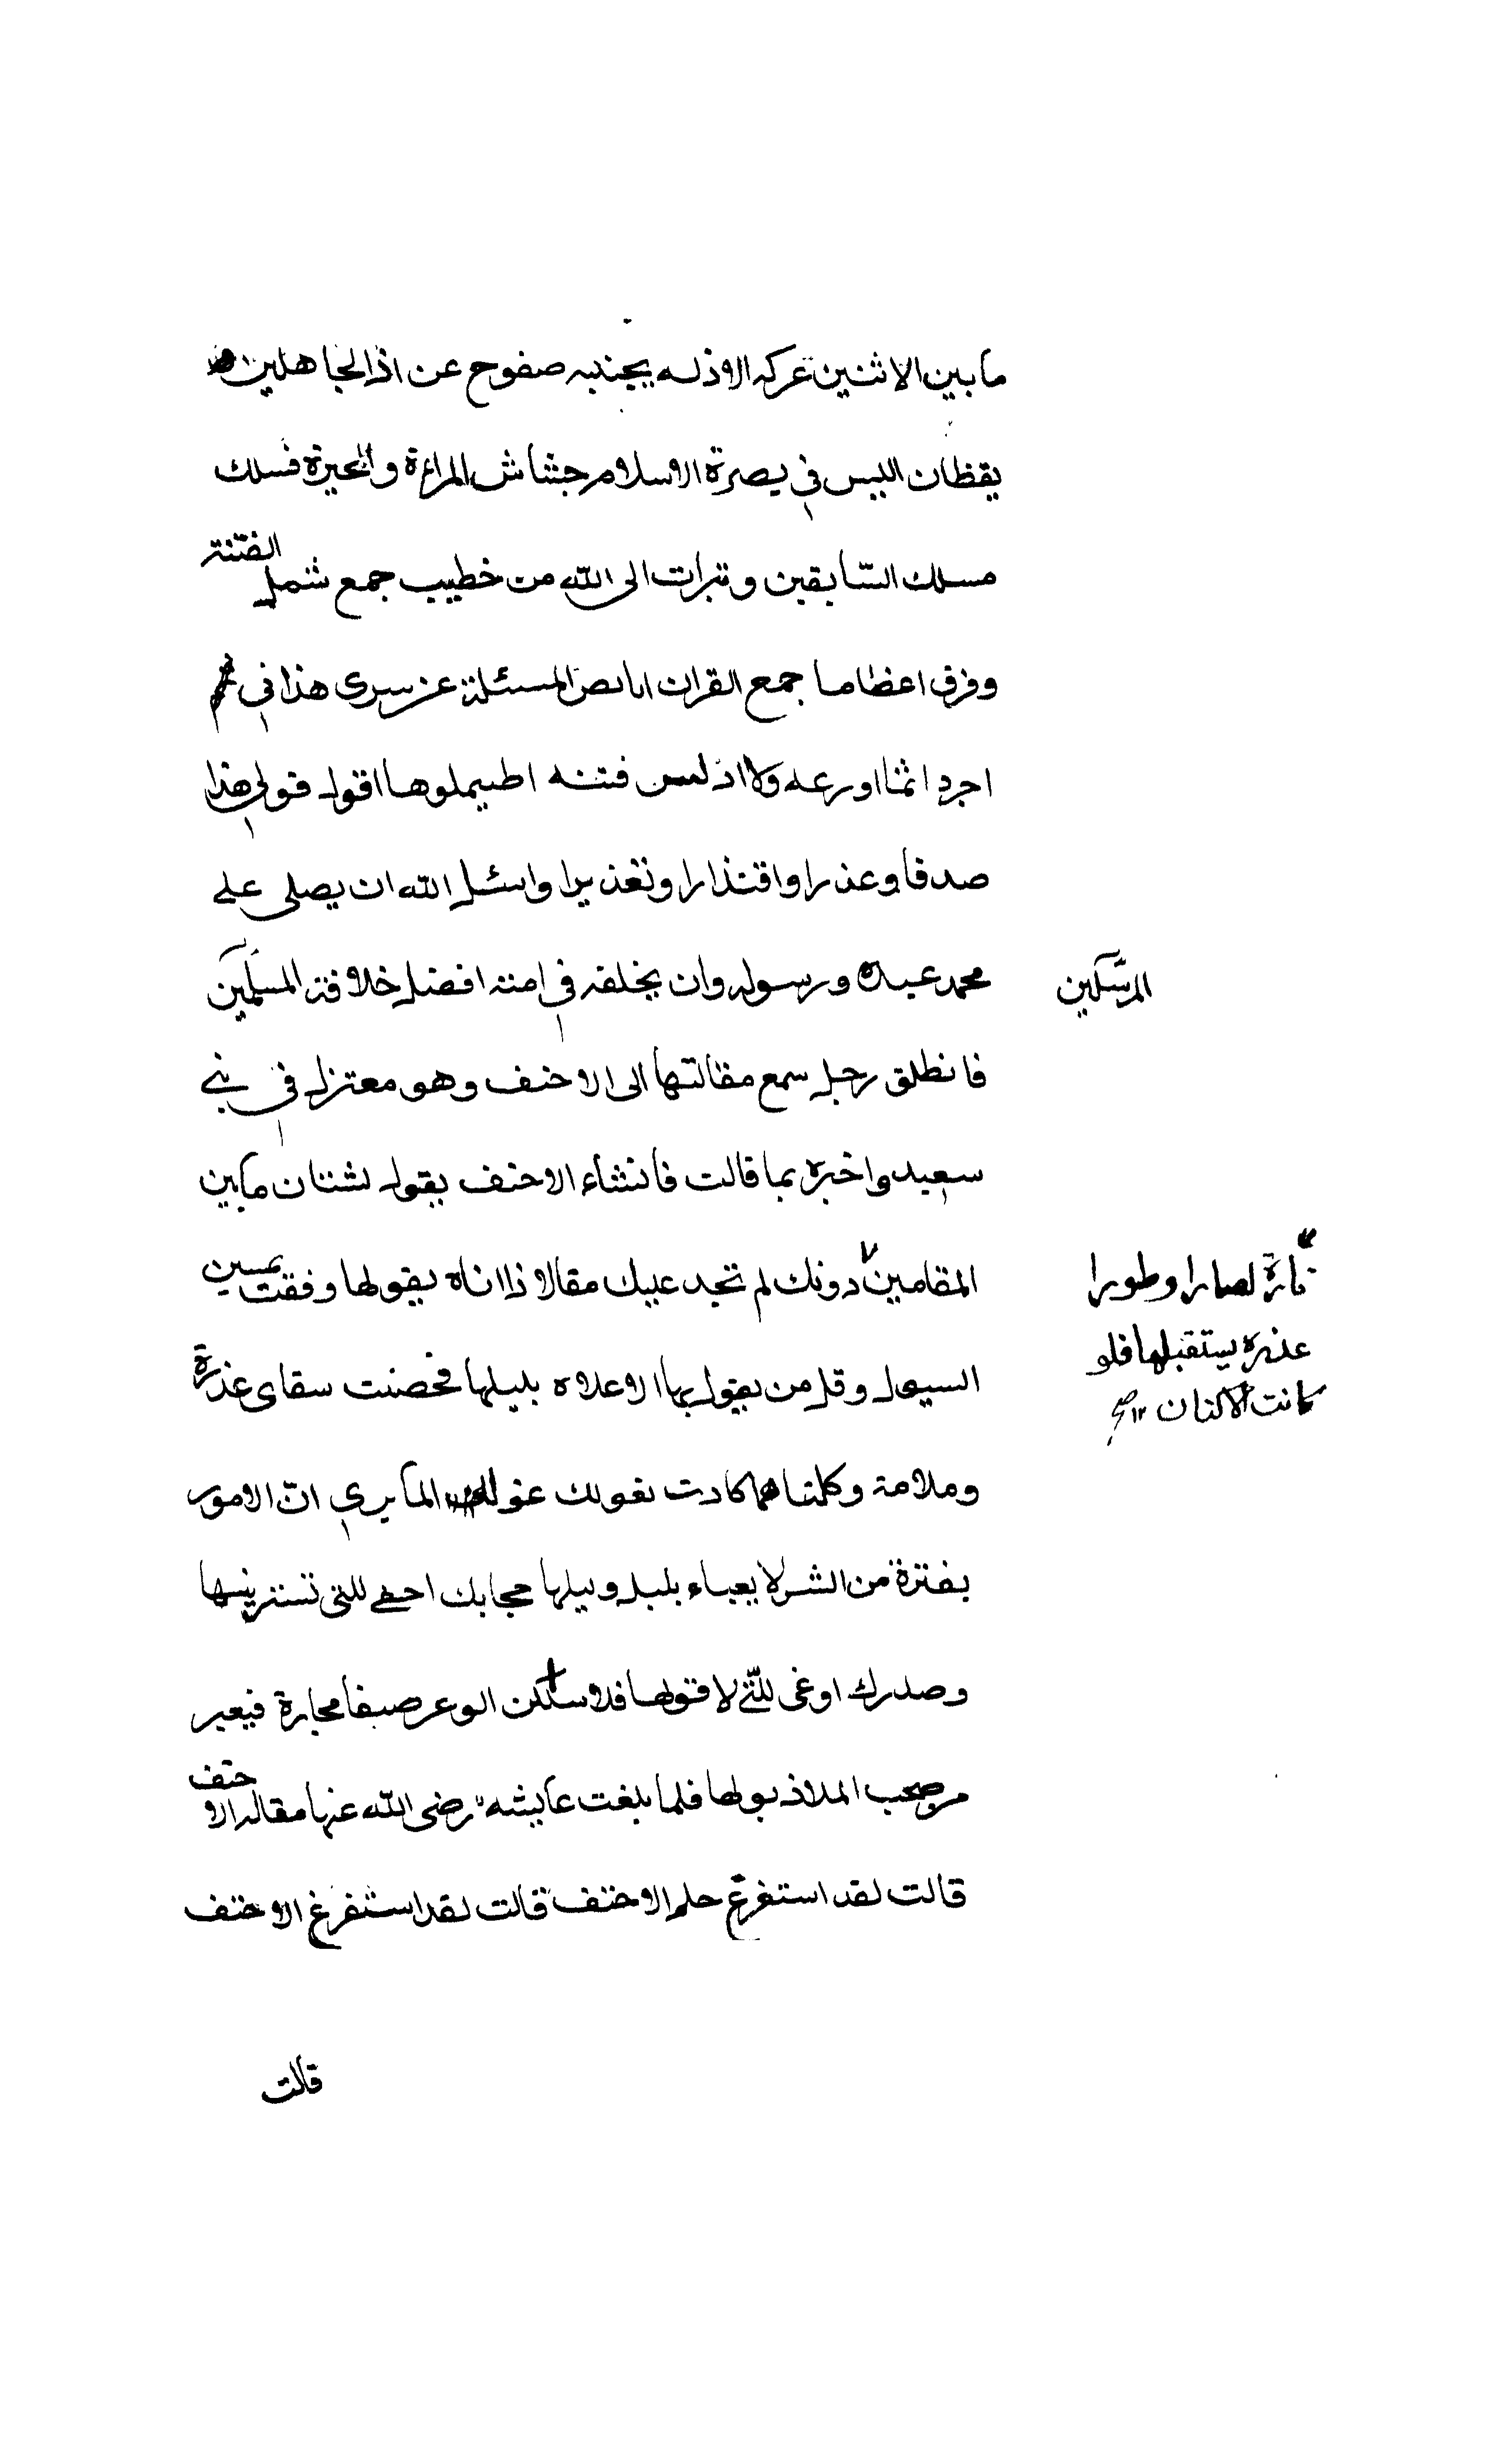 ما بين الاثنين عركه الاذله يجنبه صفوح عن اذا الجاهلين
يقظان الليس في يصرة الاسلام جشاش المراءة والمخيرة فسلك
مسلك السّابقين وتبرات الى الله من خطيب جمع شمل الفتنة
وفرق اعظاما جمع القران انا نص المسئلة عن سيرى هذا في
اجرد اثما اورعه ولا ادلس فتنه اطيملوها اقول قولي هذا
صدقا وعذرا واقتذارا وتعذيرا واسئل الله ان يصلى على
محمد عبده ورسوله وان يخلفه في امته افضل خلافة المسلمين
المرسلين
فانطلق رجل سمع مقالتها الى الاحنف وهو معتزل في بني
سعيد واخبره بما قالت فانشاء الاحنف يقول لشتان ما بين
المقامين دونك لم تجد عليك مقالا ذا اناه يقولها وفقت بمسين
تارة لصارا وطورا
عذره يستقبلها فلو
كانت الاكنان ١٢ صح
السيول وقل من يقول بها الاعلاه بليلها فخصنت سقاى عذرة
وملامة وكلتاهما كادت تغولك غولها الما يرى انّ الامور
بفترة من الشر لا يعباء بلبل وبيلها حجابك احفى للتى تسترينها
وصدرك اوغى للّتي لا قولها فلا سلكن الوعر صبفا مجارة فيعبر
من صحب الملاذ بولها فلما بلغت عايشه رضى الله عنها مقاله الاحنف
قالت لقد استفرغ حلم الاحنف قالت لقد استفرغ الاحنف
قالت